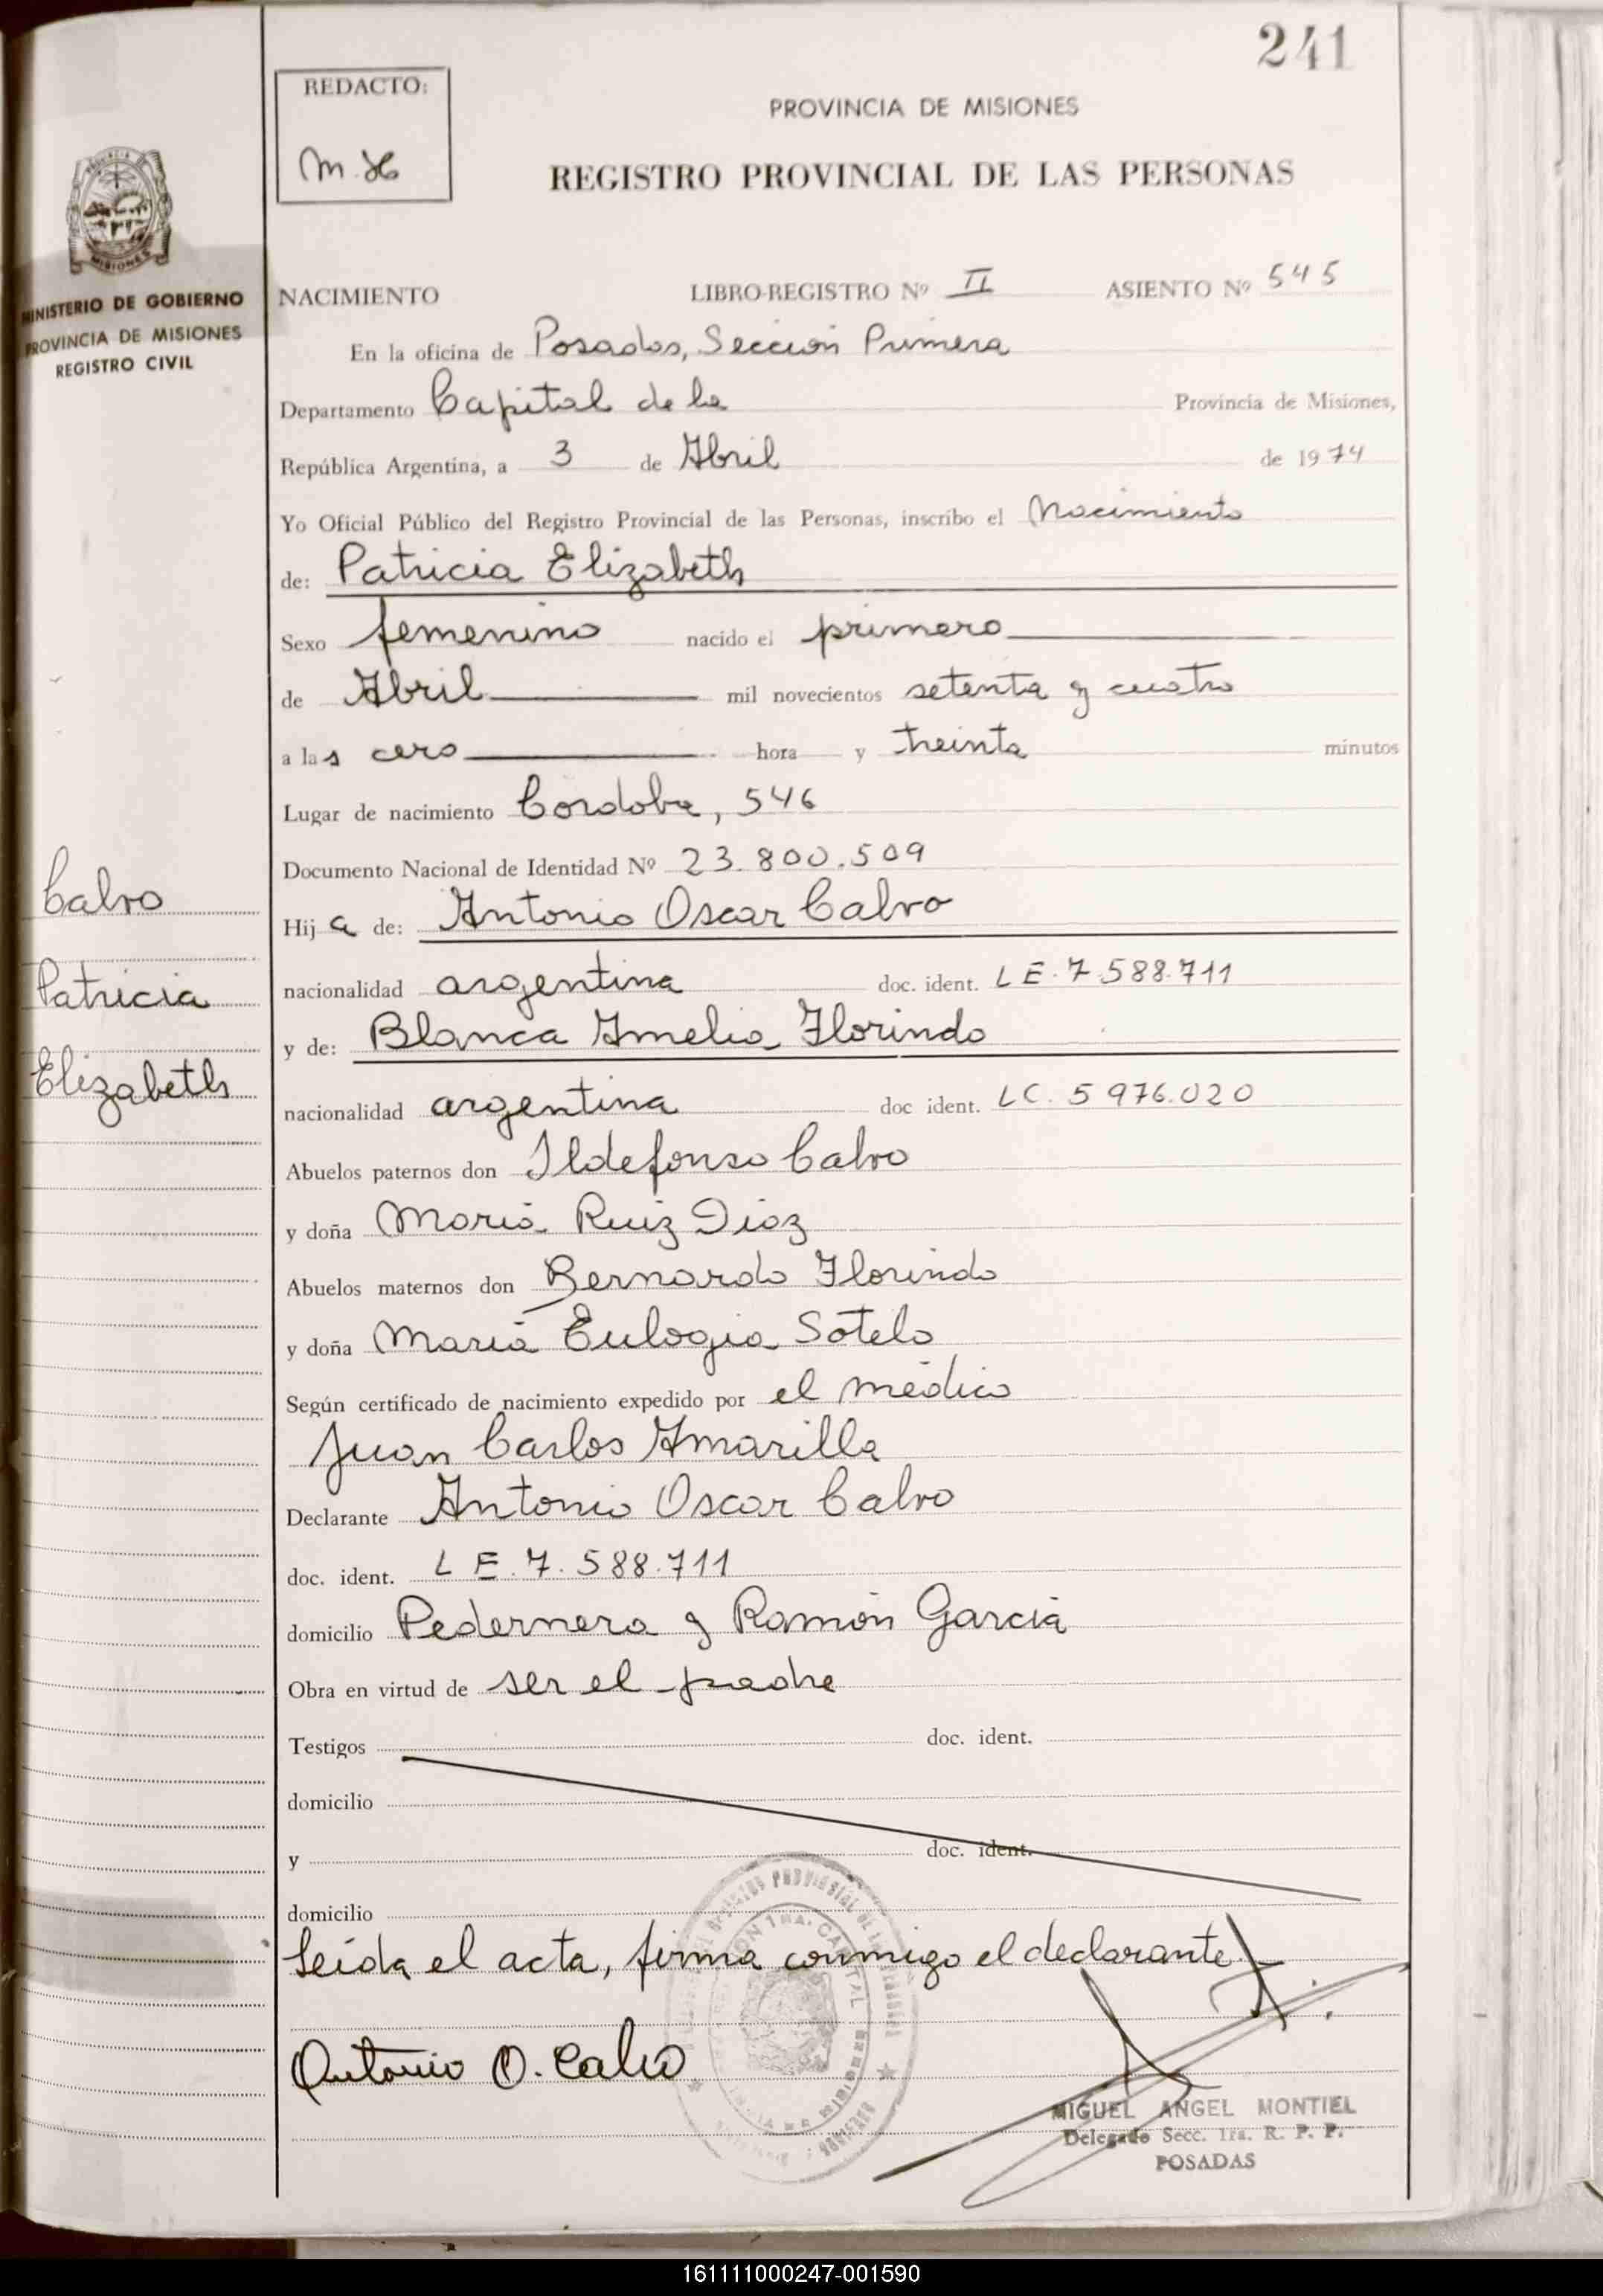 241
REDACTO:
M.H
PROVINCIA DE MISIONES
REGISTRO PROVINCIAL DE LAS PERSONAS
MISIONES
MINISTERIO DE GOBIERNO
PROVINCIA DE MISIONES
REGISTRO CIVIL
NACIMIENTO LIBRO-REGISTRO Nº II ASIENTO Nº 545
En la oficina de Posadas, Sección Primera
Departamento Capital de la Provincia de Misiones,
República Argentina, a 3 de Abril de 1974
Yo Oficial Público del Registro Provincial de las Personas, inscribo el Nacimiento
de: Patricia Elizabeth
Sexo femenino nacido el primero
de Abril mil novecientos setenta y cuatro
a las cero hora y treinta minutos
Lugar de nacimiento Cordoba, 546
Documento Nacional de Identidad Nº 23.800.509
Calvo
Hija de: Antonio Oscar Calvo
Patricia
nacionalidad argentina doc. ident. LE. 7.588.711
y de: Blanca Amelia Florindo
Elizabeth
nacionalidad argentina doc ident. LC. 5 976.020
Abuelos paternos don Ildefonso Calvo
y doña María Ruiz Diaz
Abuelos maternos don Bernardo Florindo
y doña María Eulogia Sotelo
Según certificado de nacimiento expedido por el médico
Juan Carlos Amarilla
Declarante Antonio Oscar Calvo
doc. ident. L E. 7. 588.711
domicilio Pedernera y Ramón García
Obra en virtud de ser el padre
Testigos doc. ident.
domicilio
y doc. ident.
domicilio
Leída el acta, firma conmigo el declarante.
Antonio O. Calvo
MIGUEL ANGEL MONTIEL
Delegado Secc. 1ra. R. P. P.
POSADAS
161111000247-001590